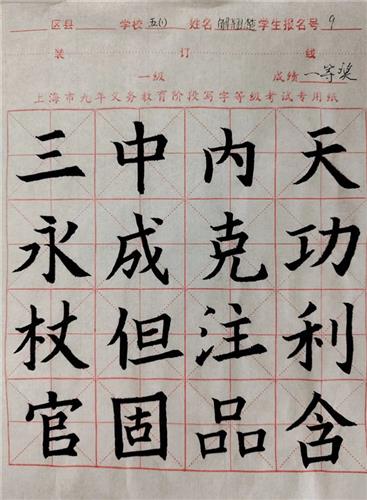 区县 学校 五(1) 姓名 学生报名号 9
装 订 线
一级 成绩 一等奖
上海市九年义务教育阶段写字等级考试专用纸
三中内天
永成克功
杖但注利
官固品含